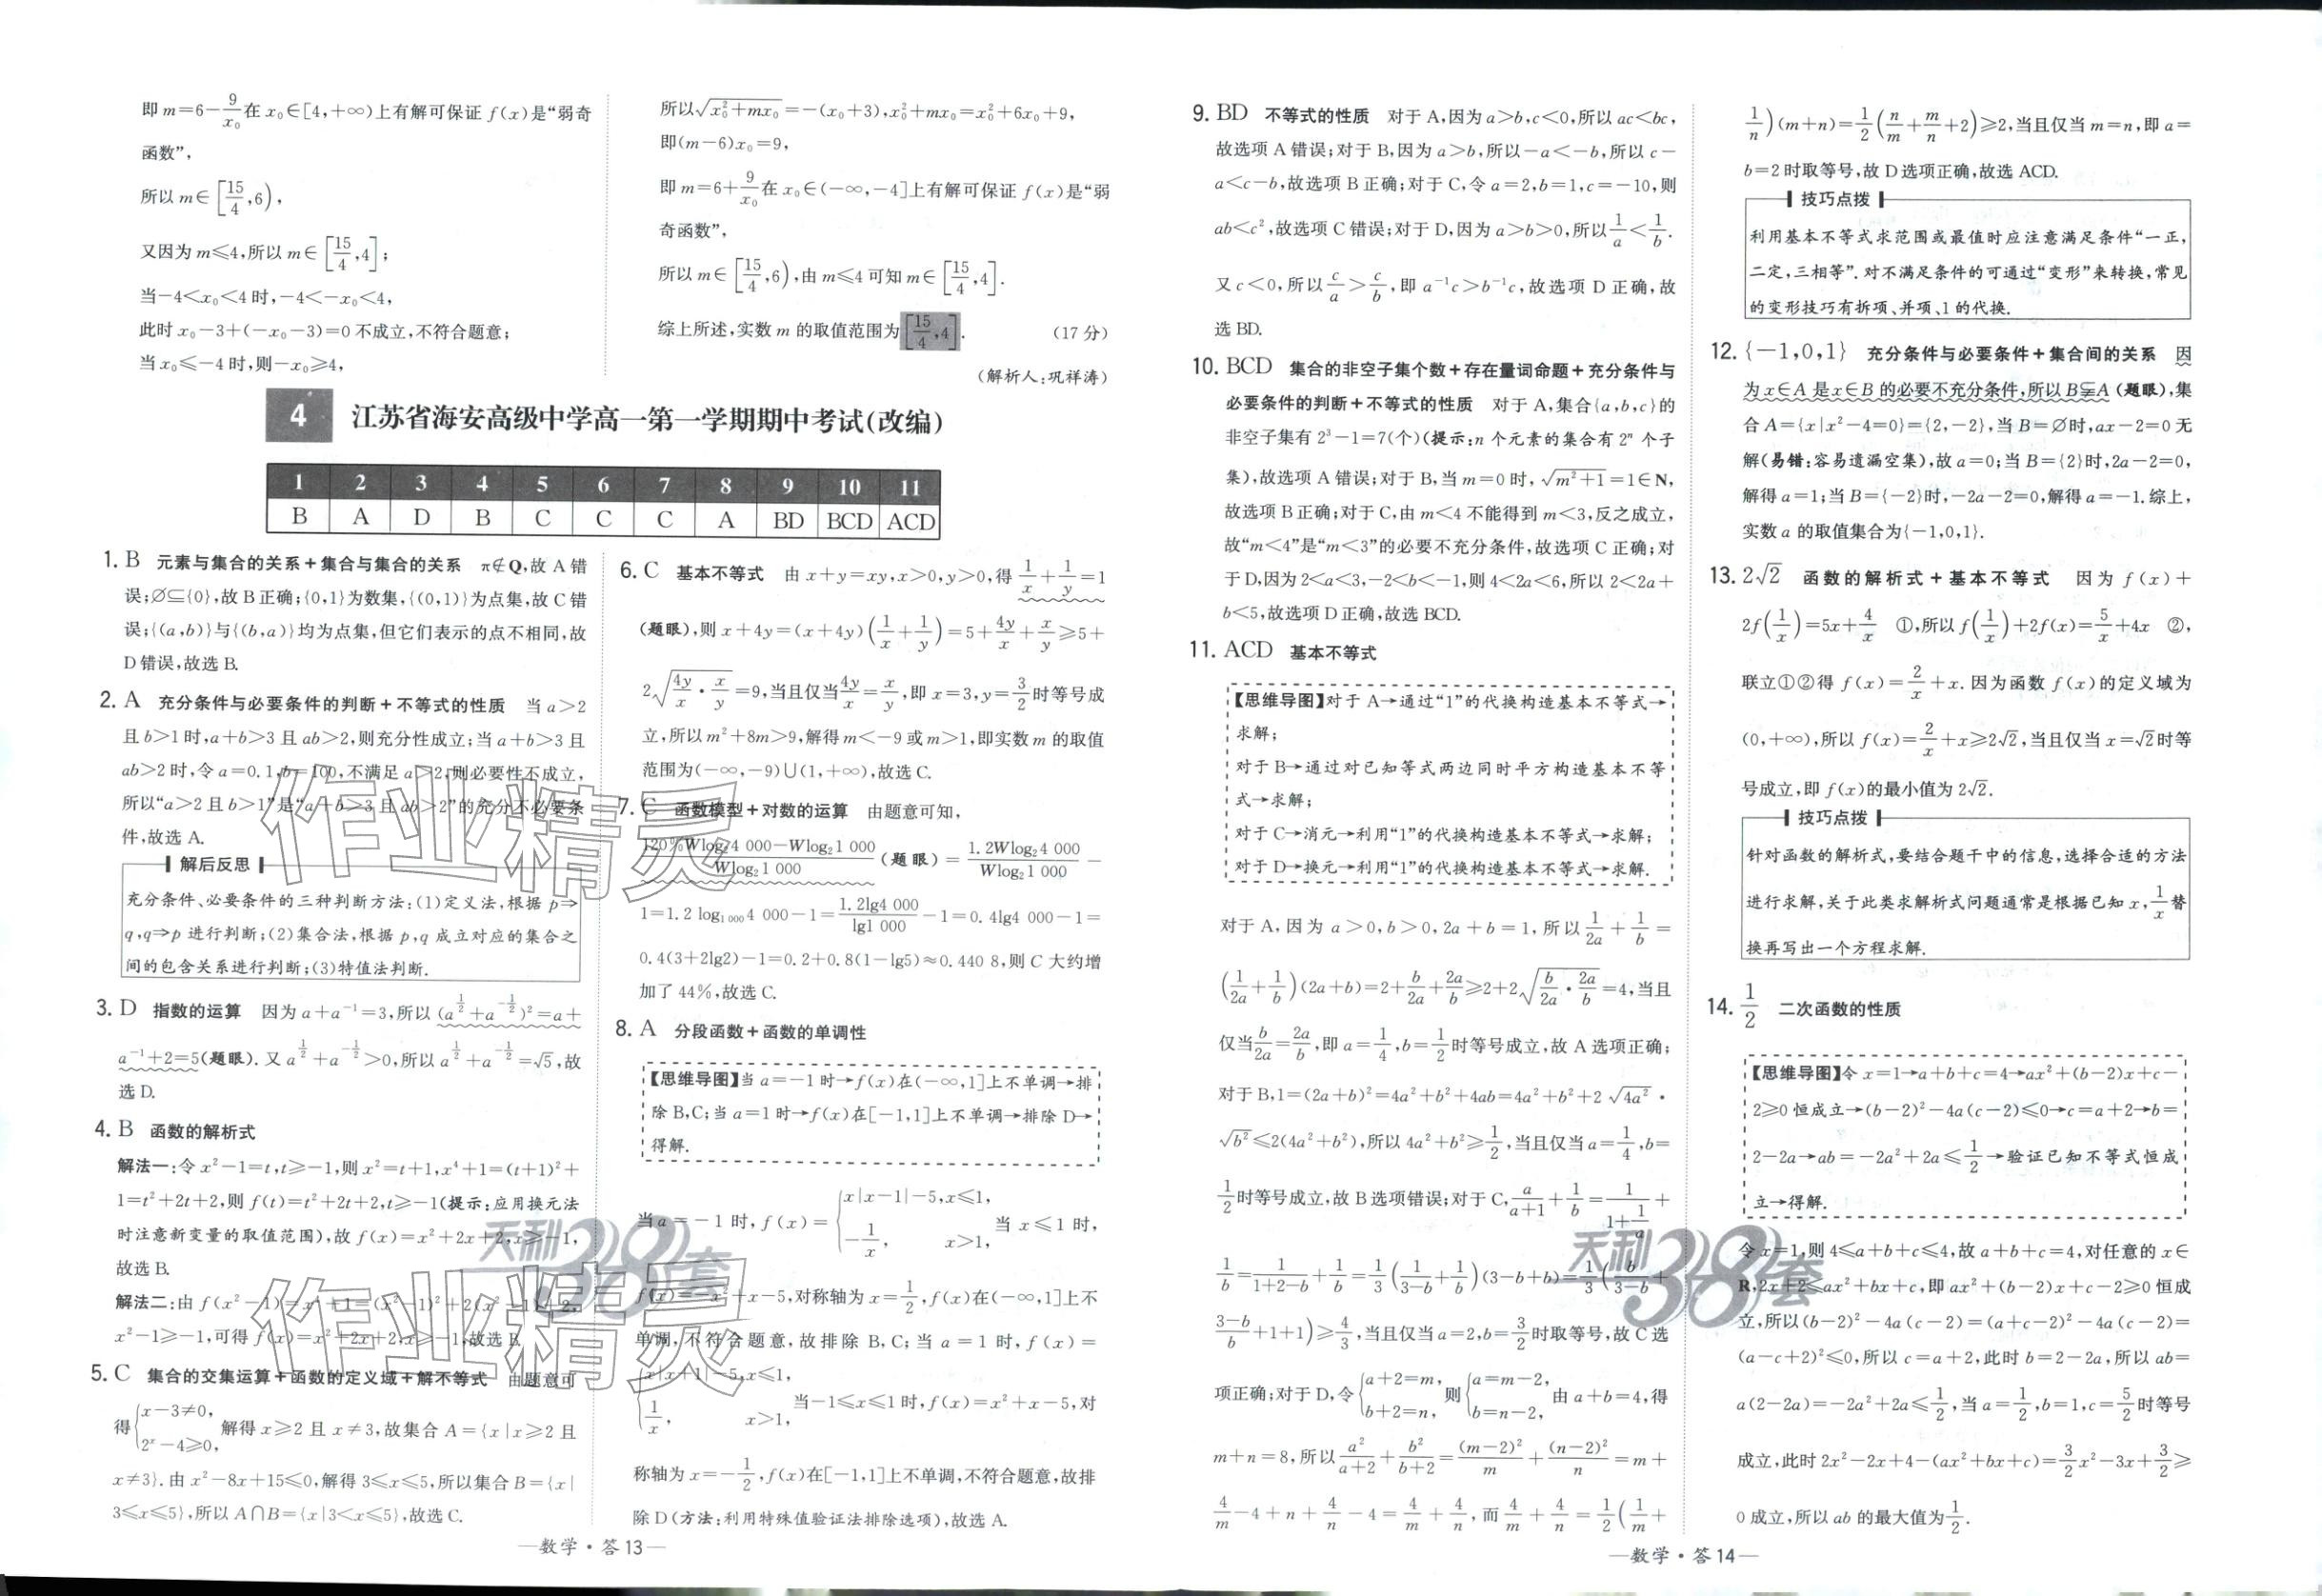 即m=6-9/x₀在x₀∈[4,+∞)上有解可保证f(x)是“弱奇
函数”,
所以m∈[15/4,6),
又因为m≤4,所以m∈[15/4,4];
当-4<x₀<4时,-4<-x₀<4,
此时x₀-3+(-x₀-3)=0不成立,不符合题意;
当x₀≤-4时,则-x₀≥4,
所以√(x₀²+mx₀)=-(x₀+3),x₀²+mx₀=x₀²+6x₀+9,
即(m-6)x₀=9,
即m=6+9/x₀在x₀∈(-∞,-4]上有解可保证f(x)是“弱
奇函数”,
所以m∈[15/4,6),由m≤4可知m∈[15/4,4].
综上所述,实数m的取值范围为[15/4,4]. (17分)
(解析人:巩祥涛)
4 江苏省海安高级中学高一第一学期期中考试(改编)
1 2 3 4 5 6 7 8 9 10 11
B A D B C C C A BD BCD ACD
1. B 元素与集合的关系+集合与集合的关系 π∉Q,故A错
误;∅⊆{0},故B正确;{0,1}为数集,{(0,1)}为点集,故C错
误;{(a,b)}与{(b,a)}均为点集,但它们表示的点不相同,故
D错误,故选B.
2. A 充分条件与必要条件的判断+不等式的性质 当a>2
且b>1时,a+b>3且ab>2,则充分性成立;当a+b>3且
ab>2时,令a=0.1,b=100,不满足a>2,则必要性不成立,
所以“a>2且b>1”是“a+b>3且ab>2”的充分不必要条
件,故选A.
解后反思
充分条件、必要条件的三种判断方法:(1)定义法,根据p⇒
q,q⇒p进行判断;(2)集合法,根据p,q成立对应的集合之
间的包含关系进行判断;(3)特值法判断.
3. D 指数的运算 因为a+a⁻¹=3,所以(a^(1/2)+a^(-1/2))²=a+
a⁻¹+2=5(题眼).又a^(1/2)+a^(-1/2)>0,所以a^(1/2)+a^(-1/2)=√5,故
选D.
4. B 函数的解析式
解法一:令x²-1=t,t≥-1,则x²=t+1,x⁴+1=(t+1)²+
1=t²+2t+2,则f(t)=t²+2t+2,t≥-1(提示:应用换元法
时注意新变量的取值范围),故f(x)=x²+2x+2,x≥-1,
故选B.
解法二:由f(x²-1)=x⁴+1=(x²-1)²+2(x²-1)+2,
x²-1≥-1,可得f(x)=x²+2x+2,x≥-1,故选B.
5. C 集合的交集运算+函数的定义域+解不等式 由题意可
得{x-3≠0, 2ˣ-4≥0, 解得x≥2且x≠3,故集合A={x|x≥2且
x≠3}.由x²-8x+15≤0,解得3≤x≤5,所以集合B={x|
3≤x≤5},所以A∩B={x|3<x≤5},故选C.
6. C 基本不等式 由x+y=xy,x>0,y>0,得1/x+1/y=1
(题眼),则x+4y=(x+4y)(1/x+1/y)=5+4y/x+x/y≥5+
2√(4y/x·x/y)=9,当且仅当4y/x=x/y,即x=3,y=3/2时等号成
立,所以m²+8m>9,解得m<-9或m>1,即实数m的取值
范围为(-∞,-9)∪(1,+∞),故选C.
7. C 函数模型+对数的运算 由题意可知,
(120%Wlog₂4 000-Wlog₂1 000)/(Wlog₂1 000)(题眼)=(1.2Wlog₂4 000)/(Wlog₂1 000)-
1=1.2 log₁₀₀₀4 000-1=(1.2lg4 000)/(lg1 000)-1=0.4lg4 000-1=
0.4(3+2lg2)-1=0.2+0.8(1-lg5)≈0.440 8,则C大约增
加了44%,故选C.
8. A 分段函数+函数的单调性
【思维导图】当a=-1时→f(x)在(-∞,1]上不单调→排
除B,C;当a=1时→f(x)在[-1,1]上不单调→排除D→
得解.
当a=-1时,f(x)={x|x-1|-5,x≤1, -1/x, x>1, 当x≤1时,
f(x)=-x²+x-5,对称轴为x=1/2,f(x)在(-∞,1]上不
单调,不符合题意,故排除B,C;当a=1时,f(x)=
{x|x+1|-5,x≤1, 1/x, x>1, 当-1≤x≤1时,f(x)=x²+x-5,对
称轴为x=-1/2,f(x)在[-1,1]上不单调,不符合题意,故排
除D(方法:利用特殊值验证法排除选项),故选A.
—数学·答13—
9. BD 不等式的性质 对于A,因为a>b,c<0,所以ac<bc,
故选项A错误;对于B,因为a>b,所以-a<-b,所以c-
a<c-b,故选项B正确;对于C,令a=2,b=1,c=-10,则
ab<c²,故选项C错误;对于D,因为a>b>0,所以1/a<1/b.
又c<0,所以c/a>c/b,即a⁻¹c>b⁻¹c,故选项D正确,故
选BD.
10. BCD 集合的非空子集个数+存在量词命题+充分条件与
必要条件的判断+不等式的性质 对于A,集合{a,b,c}的
非空子集有2³-1=7(个)(提示:n个元素的集合有2ⁿ个子
集),故选项A错误;对于B,当m=0时,√(m²+1)=1∈N,
故选项B正确;对于C,由m<4不能得到m<3,反之成立,
故“m<4”是“m<3”的必要不充分条件,故选项C正确;对
于D,因为2<a<3,-2<b<-1,则4<2a<6,所以2<2a+
b<5,故选项D正确,故选BCD.
11. ACD 基本不等式
【思维导图】对于A→通过“1”的代换构造基本不等式→
求解;
对于B→通过对已知等式两边同时平方构造基本不等
式→求解;
对于C→消元→利用“1”的代换构造基本不等式→求解;
对于D→换元→利用“1”的代换构造基本不等式→求解.
对于A,因为a>0,b>0,2a+b=1,所以1/2a+1/b=
(1/2a+1/b)(2a+b)=2+b/2a+2a/b≥2+2√(b/2a·2a/b)=4,当且
仅当b/2a=2a/b,即a=1/4,b=1/2时等号成立,故A选项正确;
对于B,1=(2a+b)²=4a²+b²+4ab=4a²+b²+2√(4a²)·
√(b²)≤2(4a²+b²),所以4a²+b²≥1/2,当且仅当a=1/4,b=
1/2时等号成立,故B选项错误;对于C,a/(a+1)+1/b=1/(1+1/a)+
1/b=1/(1+2-b)+1/b=1/3(1/(3-b)+1/b)(3-b+b)=1/3(b/(3-b)+
(3-b)/b+1+1)≥4/3,当且仅当a=2,b=3/2时取等号,故C选
项正确;对于D,令{a+2=m, b+2=n, 则{a=m-2, b=n-2, 由a+b=4,得
m+n=8,所以a²/(a+2)+b²/(b+2)=(m-2)²/m+(n-2)²/n=m+
4/m-4+n+4/n-4=4/m+4/n,而4/m+4/n=1/2(1/m+
1/n)(m+n)=1/2(n/m+m/n+2)≥2,当且仅当m=n,即a=
b=2时取等号,故D选项正确,故选ACD.
技巧点拨
利用基本不等式求范围或最值时应注意满足条件“一正,
二定,三相等”.对不满足条件的可通过“变形”来转换,常见
的变形技巧有拆项、并项、1的代换.
12. {-1,0,1} 充分条件与必要条件+集合间的关系 因
为x∈A是x∈B的必要不充分条件,所以B⫋A(题眼),集
合A={x|x²-4=0}={2,-2},当B=∅时,ax-2=0无
解(易错:容易遗漏空集),故a=0;当B={2}时,2a-2=0,
解得a=1;当B={-2}时,-2a-2=0,解得a=-1.综上,
实数a的取值集合为{-1,0,1}.
13. 2√2 函数的解析式+基本不等式 因为f(x)+
2f(1/x)=5x+4/x ①,所以f(1/x)+2f(x)=5/x+4x ②,
联立①②得f(x)=2/x+x.因为函数f(x)的定义域为
(0,+∞),所以f(x)=2/x+x≥2√2,当且仅当x=√2时等
号成立,即f(x)的最小值为2√2.
技巧点拨
针对函数的解析式,要结合题干中的信息,选择合适的方法
进行求解,关于此类求解析式问题通常是根据已知x,1/x替
换再写出一个方程求解.
14. 1/2 二次函数的性质
【思维导图】令x=1→a+b+c=4→ax²+(b-2)x+c-
2≥0恒成立→(b-2)²-4a(c-2)≤0→c=a+2→b=
2-2a→ab=-2a²+2a≤1/2→验证已知不等式恒成
立→得解.
令x=1,则4≤a+b+c≤4,故a+b+c=4,对任意的x∈
R,2x+2≤ax²+bx+c,即ax²+(b-2)x+c-2≥0恒成
立,所以(b-2)²-4a(c-2)=(a+c-2)²-4a(c-2)=
(a-c+2)²≤0,所以c=a+2,此时b=2-2a,所以ab=
a(2-2a)=-2a²+2a≤1/2,当a=1/2,b=1,c=5/2时等号
成立,此时2x²-2x+4-(ax²+bx+c)=3/2x²-3x+3/2≥
0成立,所以ab的最大值为1/2.
—数学·答14—
作业精灵
天利38套
作业精灵
天利38套